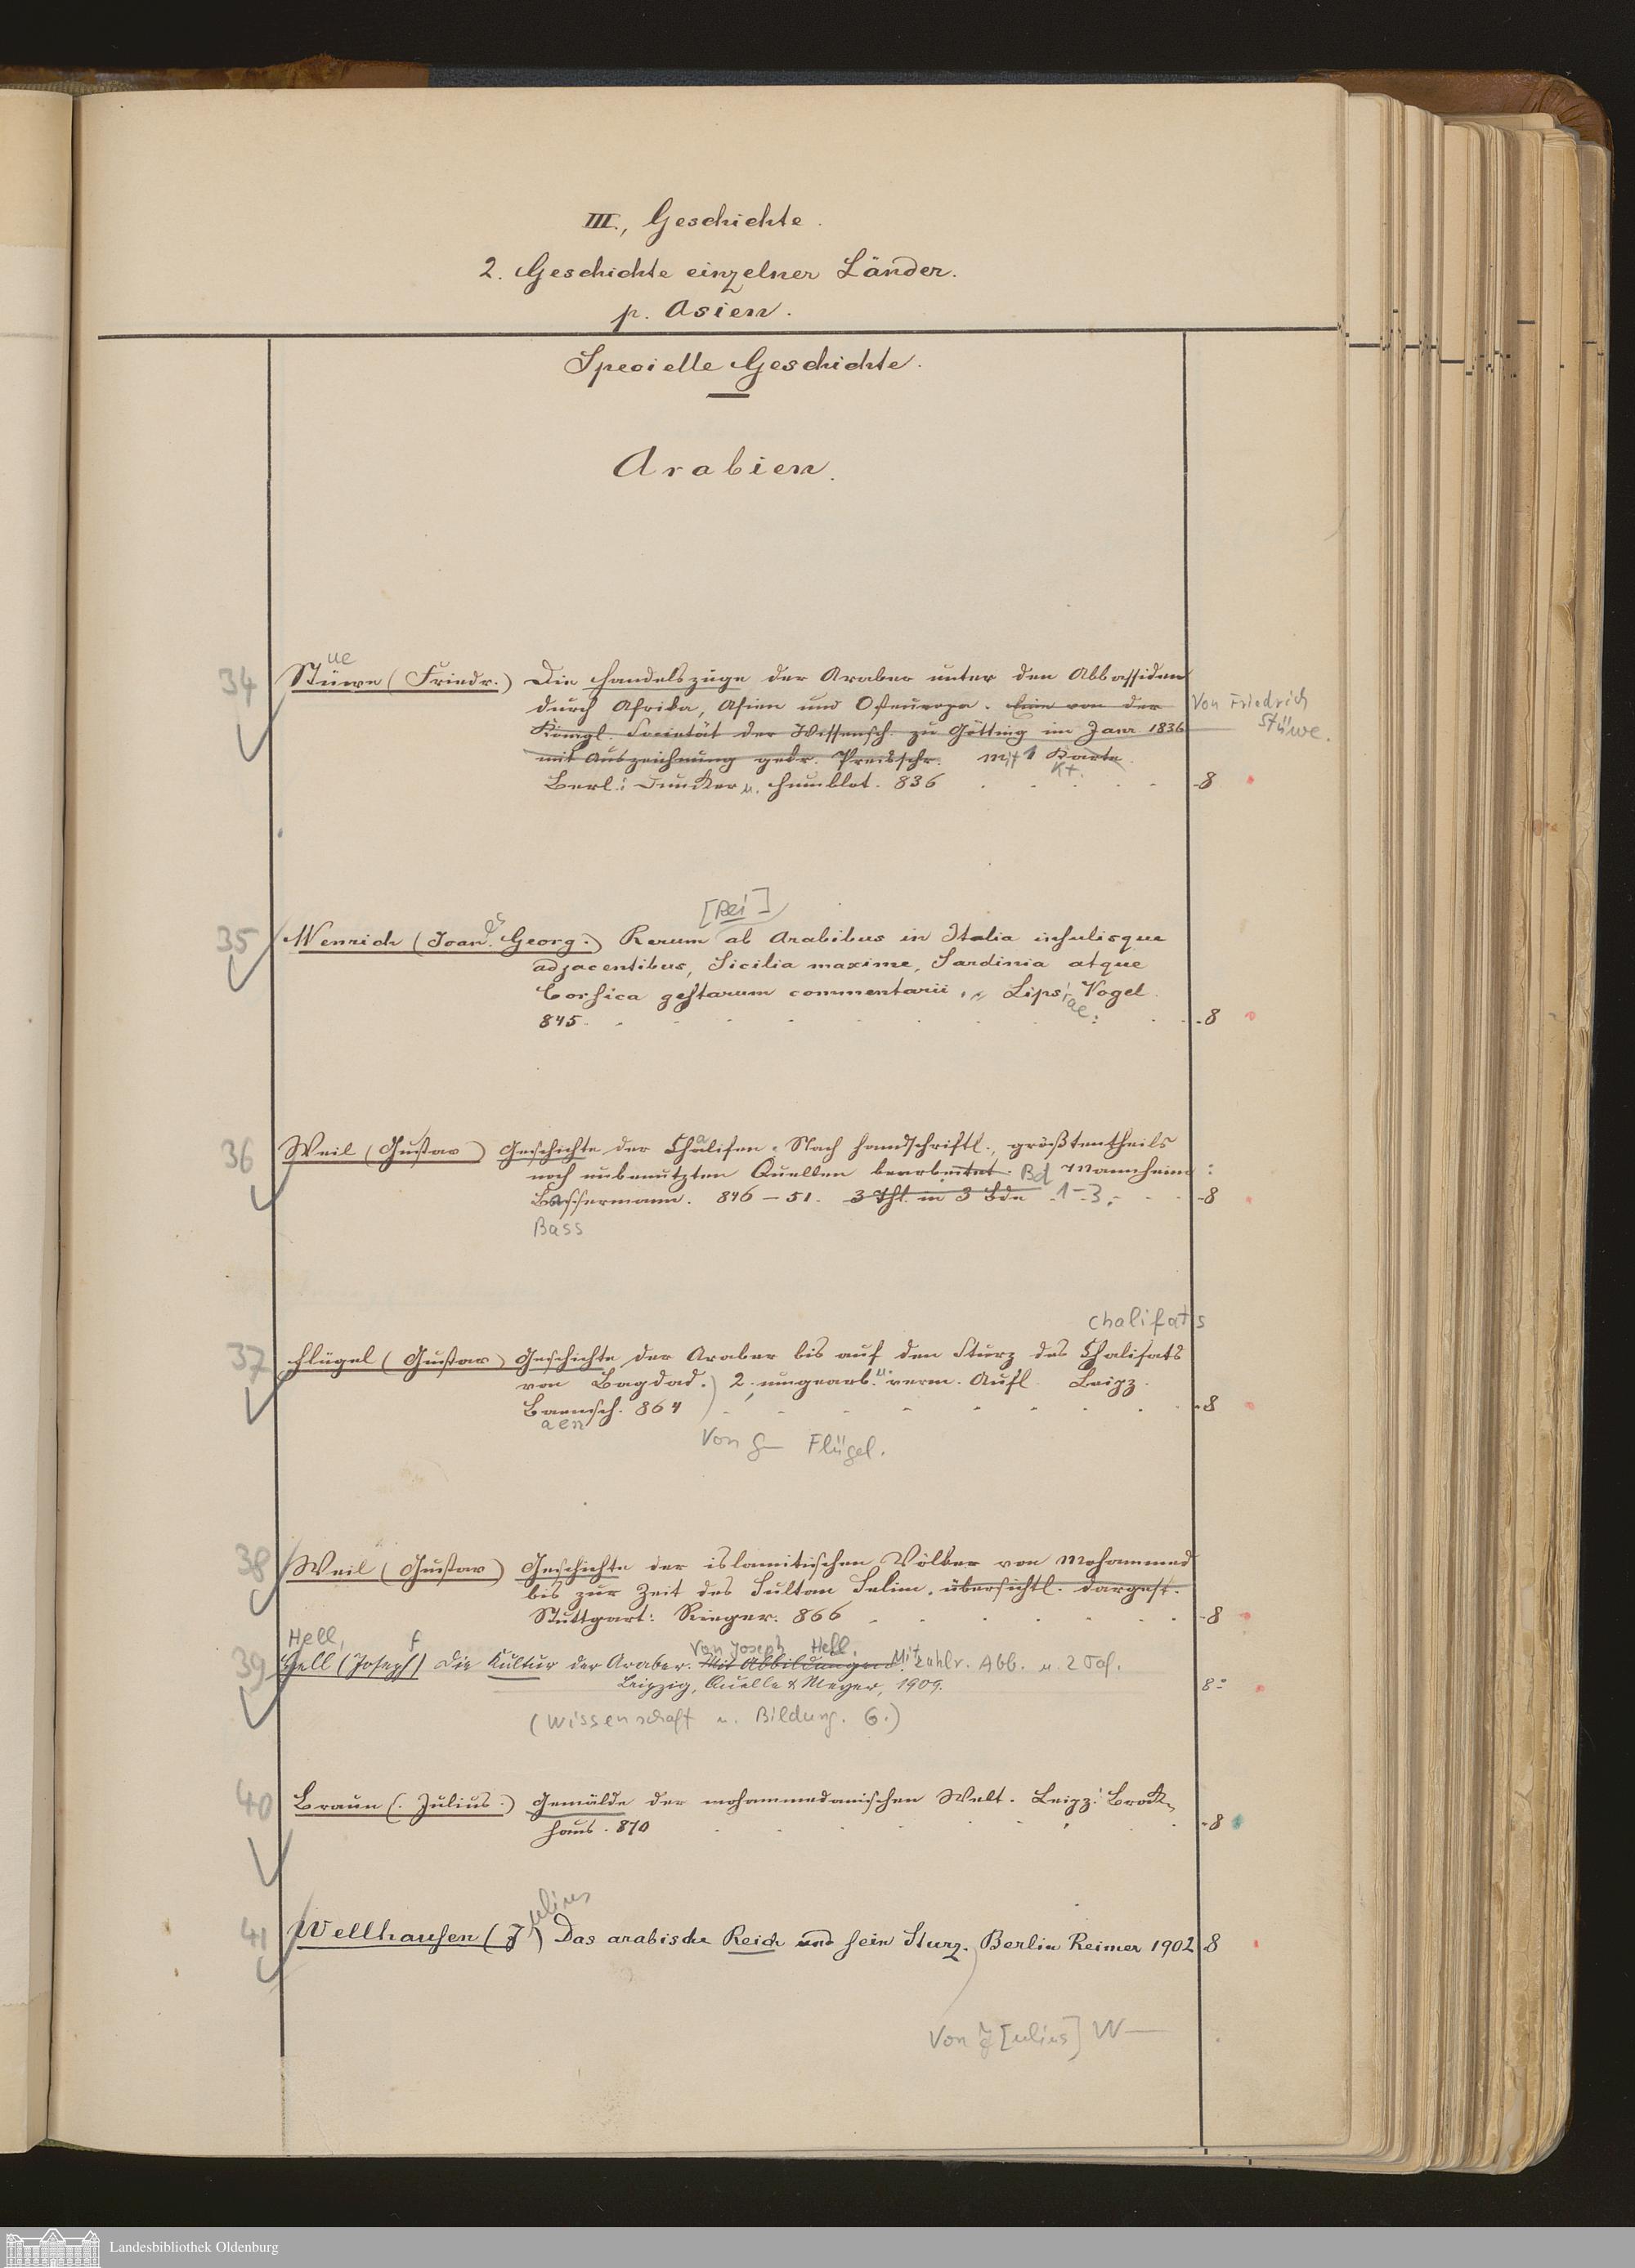 III., Geschichte.
2. Geschichte einzelner Länder.
p. Asien.
Specielle Geschichte.
Arabien.
ue
34 Stüwe (Friedr.) Die Handelszüge der Araber unter den Abbassiden
durch Afrika, Asien und Osteuropa. Eine von der
Von Friedrich
Stüwe.
Königl. Societät der Wissensch. zu Götting im Janr. 1836
mit Auszeichnung gekr. Preisschr. Mit 1 Karte
Kt.
Berl.: Duncker u. Humblot. 836 8
[Rei]
35 Wenrich (Joan. Georg.) Rerum ab Arabibus in Italia insulisque
adjacentibus, Sicilia maxime, Sardinia atque
Corsica gestarum commentarii. Lipsiae: Vogel.
845. 8
36 Weil (Gustav) Geschichte der Chalifen. Nach handschriftl., größtentheils
noch unbenutzten Quellen bearbeitet. Bd Mannheim:
Bassermann. 846-51. 3 Thl. in 3 Bde 1-3. 8
Bass
Chalifats
37 Flügel (Gustav) Geschichte der Araber bis auf den Sturz des Chalifats
von Bagdad. 2. umgearb. u. verm. Aufl. Leipz.
Baensch. 864 8
aen
Von G— Flügel.
38 Weil (Gustav) Geschichte der islamitischen Völker von Mohammed
bis zur Zeit des Sultan Selim. übersichtl. dargest.
Stuttgart: Rieger. 866 8
Hell, f Von Joseph Hell.
39 Hell (Joseph) Die Kultur der Araber. Mit Abbildungen. Mit zahlr. Abb. u. 2 Taf.
Leipzig, Quelle & Meyer, 1909. 8°
(Wissenschaft u. Bildung. 6.)
40 Braun (Julius.) Gemälde der mohammedanischen Welt. Leipz: Brock-
haus. 870 8
ulius
41 Wellhausen (J) Das arabische Reich und sein Sturz. Berlin Reimer 1902 8
Von J[ulius] W—
Landesbibliothek Oldenburg